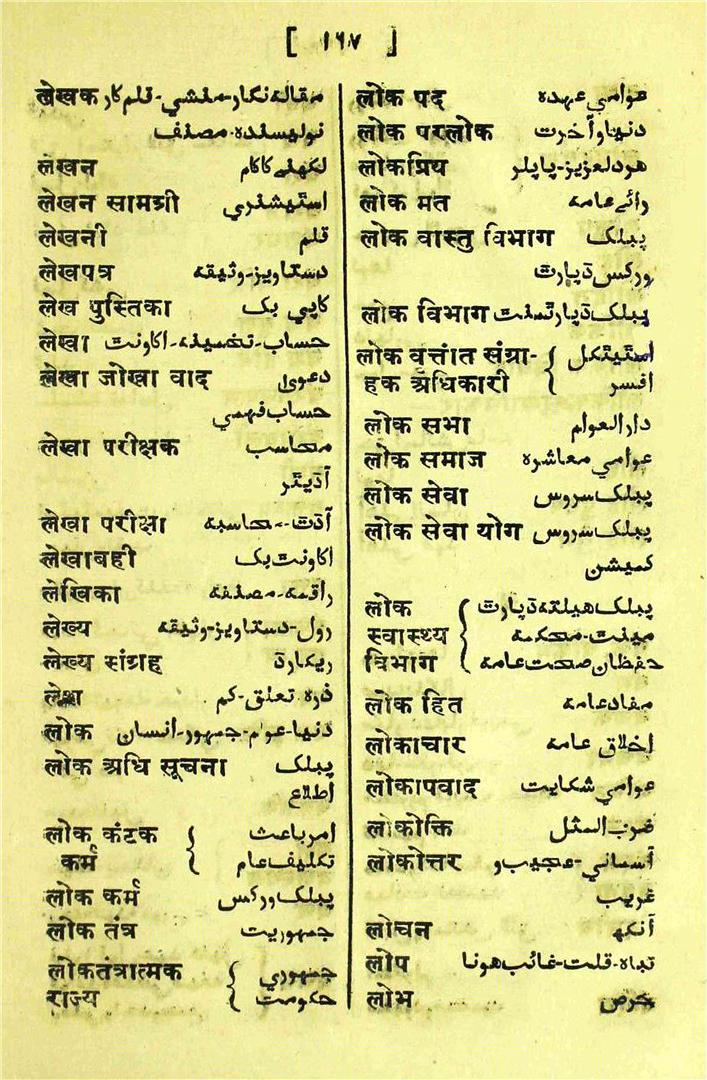 [ ١٦٧ ]
लेखक مقاله نگار-منشي-قلم کار
نوليسنده-مصنف
लेखन لکهنے کا کام
लेखन सामग्री استيشنري
लेखनी قلم
लेखपत्र دستاويز-وثيقه
लेख पुस्तिका کاپي بک
लेखा حساب-تخمينه-اکاونت
लेखा जोखा वाद دعوى
حساب فهمي
लेखा परीक्षक محاسب
آڌيٿر
लेखा परीक्षा آڌت-محاسبه
लेखाबही اکاونت بک
लेखिका راقمه-مصنفه
लेख्य رول-دستاويز-وثيقه
लेख्य सांग्रह ريکارڌ
लेश ذره-تعلق-کم
लोक دنيا-عوام-جمهور-انسان
लोक अधि सूचना پبلک
اطلاع
लोक कंटक { امر باعث
कर्म تکليف عام
लोक कर्म پبلک ورکس
लोक तंत्र جمهوريت
लोकतंत्रात्मक { جمهوري
राज्य حکومت
लोक पद عوامي عهده
लोक परलोक دنيا و آخرت
लोकप्रिय هردلعزيز-پاپلر
लोक मत رائے عامه
लोक वास्तु विभाग پبلک
ورکس ڌپارت
लोक विभाग پبلک ڌپارتمنت
लोक वत्तांत संग्रा- { استيٿکل
हक अधिकारी افسر
लोक सभा دارالعوام
लोक समाज عوامي معاشره
लोक सेवा پبلک سروس
लोक सेवा योग پبلک سروس
کميشن
लोक { پبلک هيلته ڌپارت
स्वास्थ्य مينت-محکمه
विभाग حفظان صحت عامه
लोक हित مفاد عامه
लोकाचार اخلاق عامه
लोकापवाद عوامي شکايت
लोकोक्ति ضرب المثل
लोकोत्तर آسماني-عجيب و
غريب
लोचन آنکھ
लोप تباه-قلت-غائب هونا
लोभ حرص